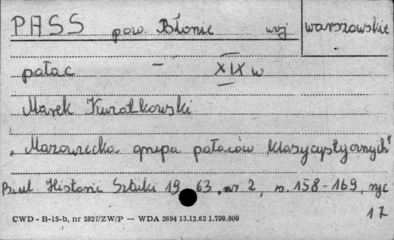 PASS pow. Błonie woj warszawskie
pałac – XIX w
Marek Kwiatkowski
„Mazowiecka grupa pałaców klasycystycznych"
Biul Historii Sztuki 1963, nr 2, s. 158-169, ryc
17
CWD - B-15-b, nr 2827/ZW/P — WDA 2694 13.12.62 1.700.000